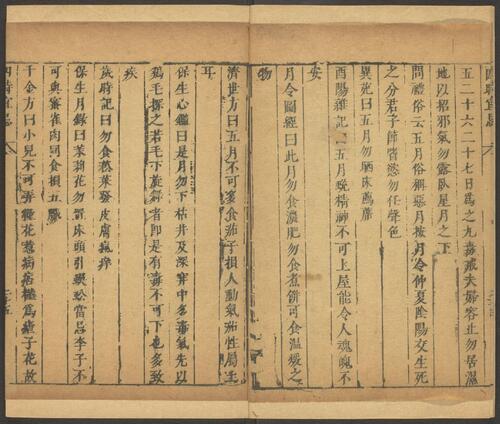 五二十六二十七日爲之九毒戒夫婦容止勿居濕
地以招邪氣勿露臥星月之下
問禮俗云五月俗稱惡月按月令仲夏陰陽交生死
之分君子節嗜慾勿任聲色
異苑曰五月勿晒床薦蓆
酉陽雜記曰五月蛻精神不可上屋能令人魂魄不
安
月令圖經曰此月勿食濃肥勿食煮餅可食温煖之
物
濟世方曰五月不可多食茄子損人動氣茄性屬土
耳
保生心鑑曰是月勿下枯井及深穽中多毒氣先以
鷄毛探之若毛下旋舞者即是有毒不可下也多致
疾
歲時記曰勿食菾菜發皮膚瘋痒
保生月錄曰茉莉花勿置床頭引蜈蚣當忌李子不
可與蜜雀肉同食損五臟
千金方曰小兒不可弄槿花惹病痁槿爲瘧子花故
四時宜忌